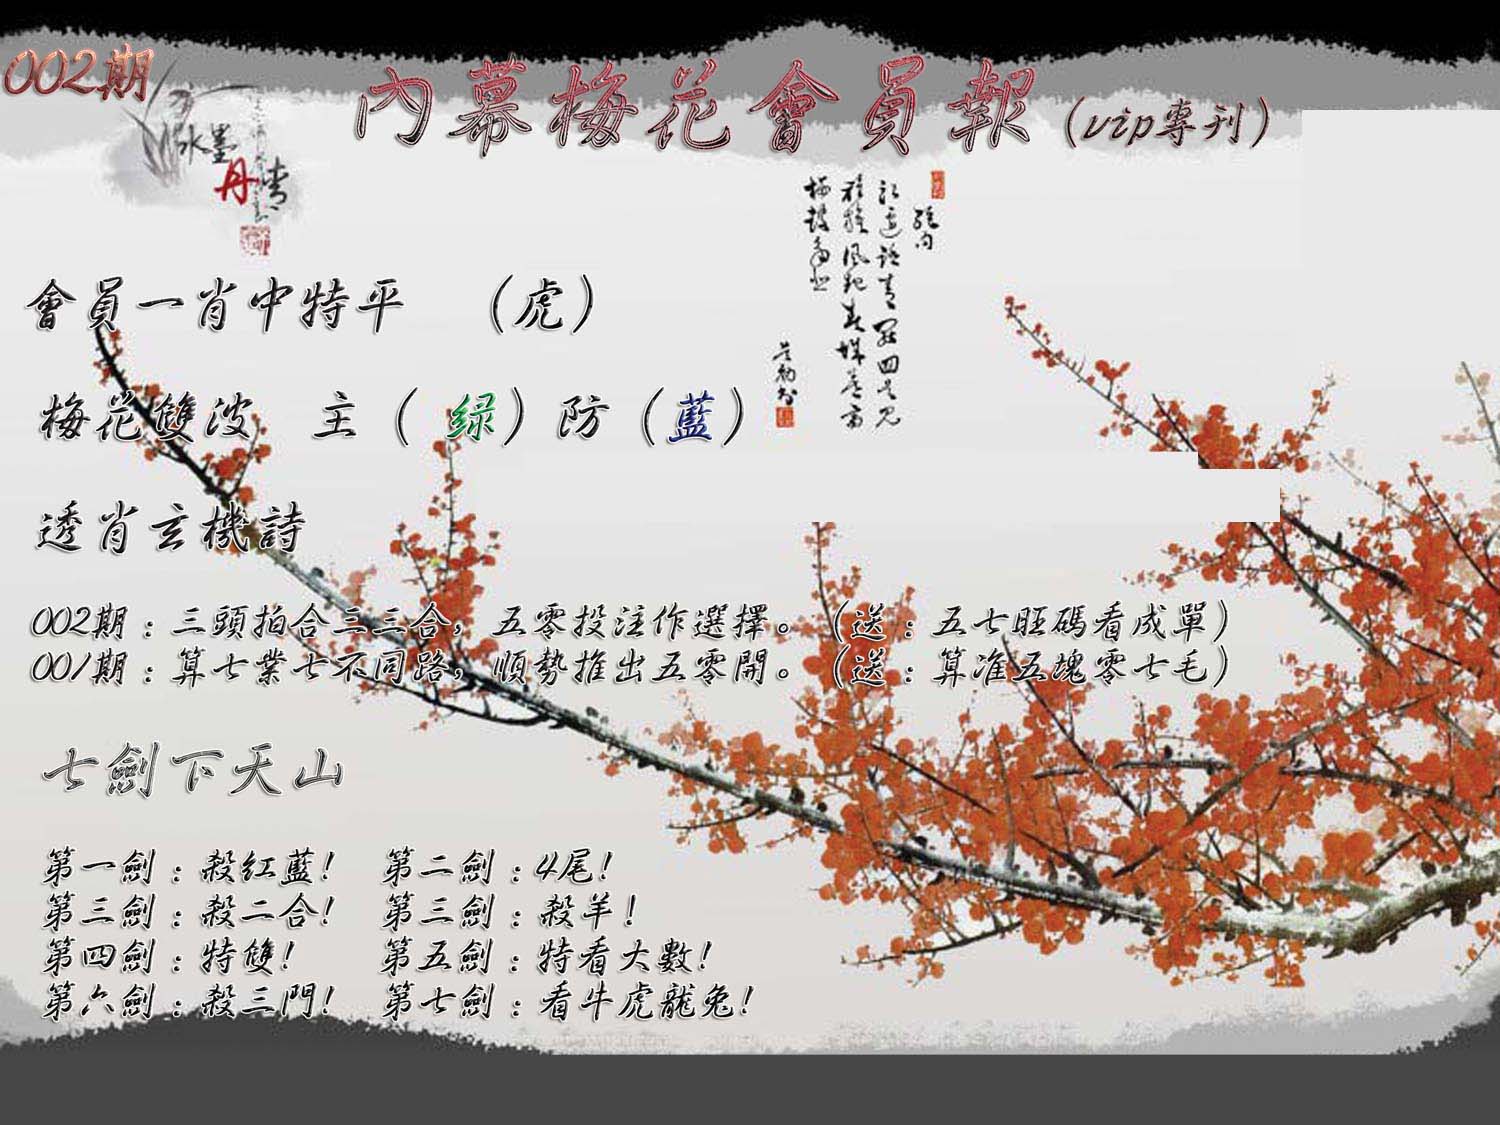 002期
內幕梅花會員報(vip專刊)
水墨
丹青
會員一肖中特平 (虎)
梅花雙波 主(綠)防(藍)
透肖玄機詩
002期:三頭拍合三三合,五零投注作選擇。(送:五七旺碼看成單)
001期:算七業七不同路,順勢推出五零開。(送:算准五塊零七毛)
七劍下天山
第一劍:殺紅藍! 第二劍:4尾!
第三劍:殺二合! 第三劍:殺羊!
第四劍:特雙! 第五劍:特看大數!
第六劍:殺三門! 第七劍:看牛虎龍兔!